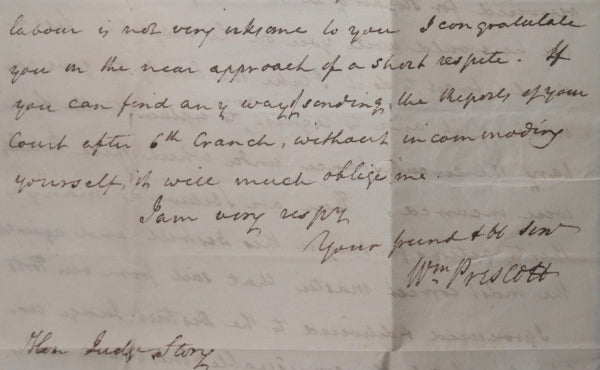 labour is not very irksome to you I congratulate
you on the near approach of a short respite. If
you can find any way of sending the Reports of your
Court after 6th Cranch, without incommoding
yourself, it will much oblige me.
I am very respy
Your friend & ob Servt
Wm Prescott
Hon Judge Story